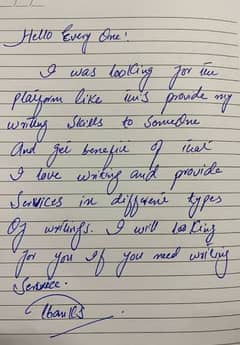 Hello Every One!
I was looking for the
platform like this provide my
writing skills to someone
And get benefit of that
I love writing and provide
Services in different types
Of writings. I will looking
for you If you need writing
Service.
thanks